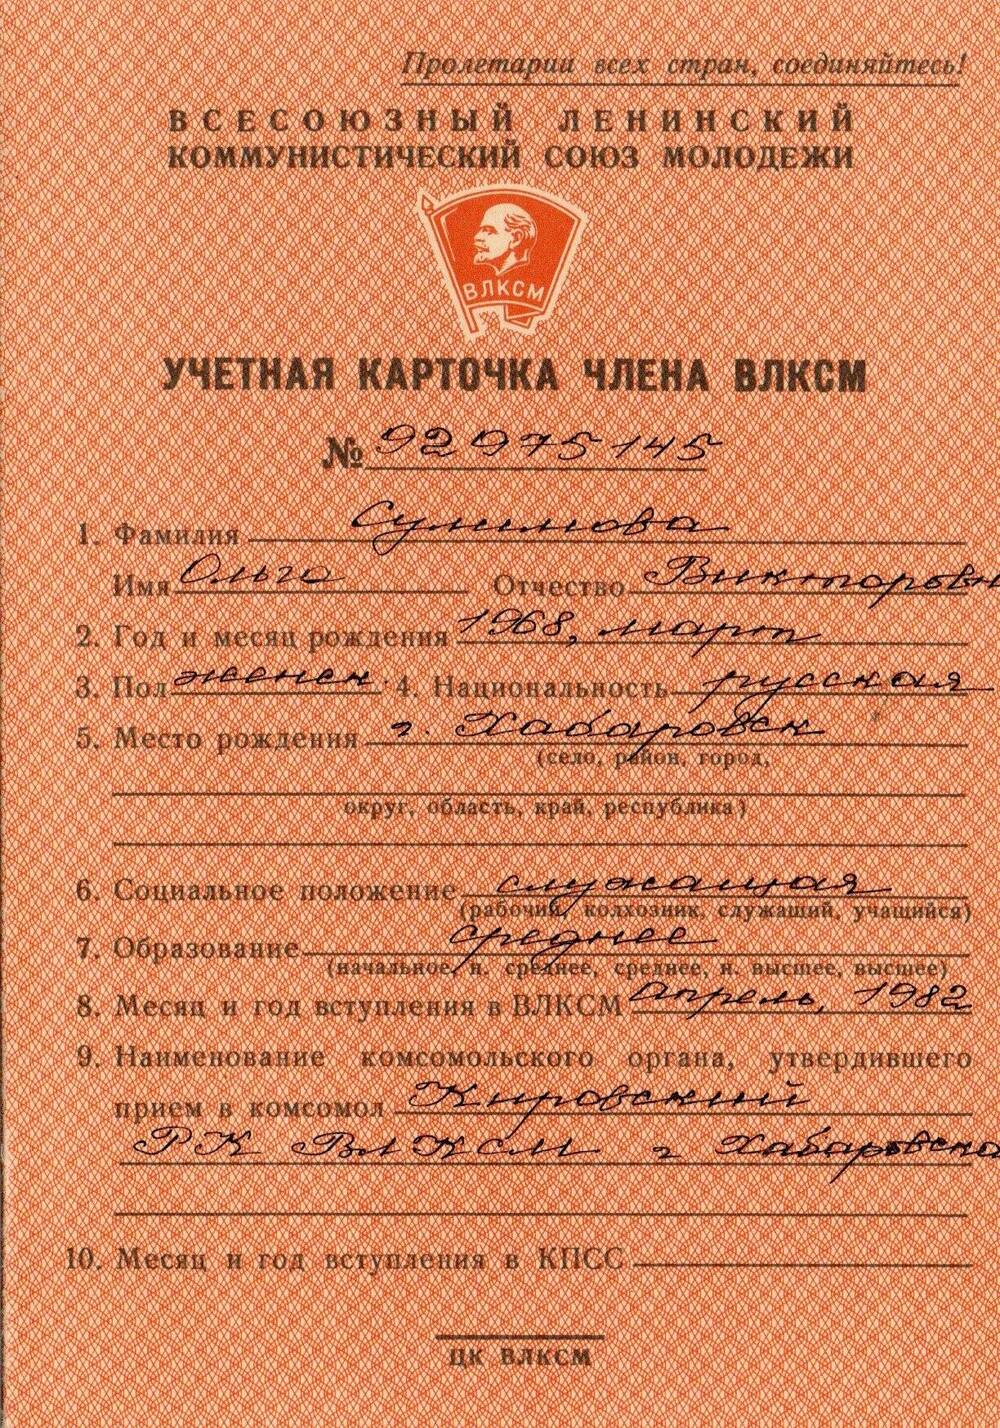 Пролетарии всех стран, соединяйтесь!
ВСЕСОЮЗНЫЙ ЛЕНИНСКИЙ
КОММУНИСТИЧЕСКИЙ СОЮЗ МОЛОДЕЖИ
ВЛКСМ
УЧЕТНАЯ КАРТОЧКА ЧЛЕНА ВЛКСМ
№ 92975145
1. Фамилия Сулимова
Имя Ольга Отчество Викторовн
2. Год и месяц рождения 1968, март
3. Пол женск. 4. Национальность русская
5. Место рождения г. Хабаровск
(село, район, город,
округ, область, край, республика)
6. Социальное положение служащая
(рабочий, колхозник, служащий, учащийся)
7. Образование среднее
(начальное, н. среднее, среднее, н. высшее, высшее)
8. Месяц и год вступления в ВЛКСМ апрель, 1982
9. Наименование комсомольского органа, утвердившего
прием в комсомол Кировский
РК ВЛКСМ г Хабаровска
10. Месяц и год вступления в КПСС
ЦК ВЛКСМ